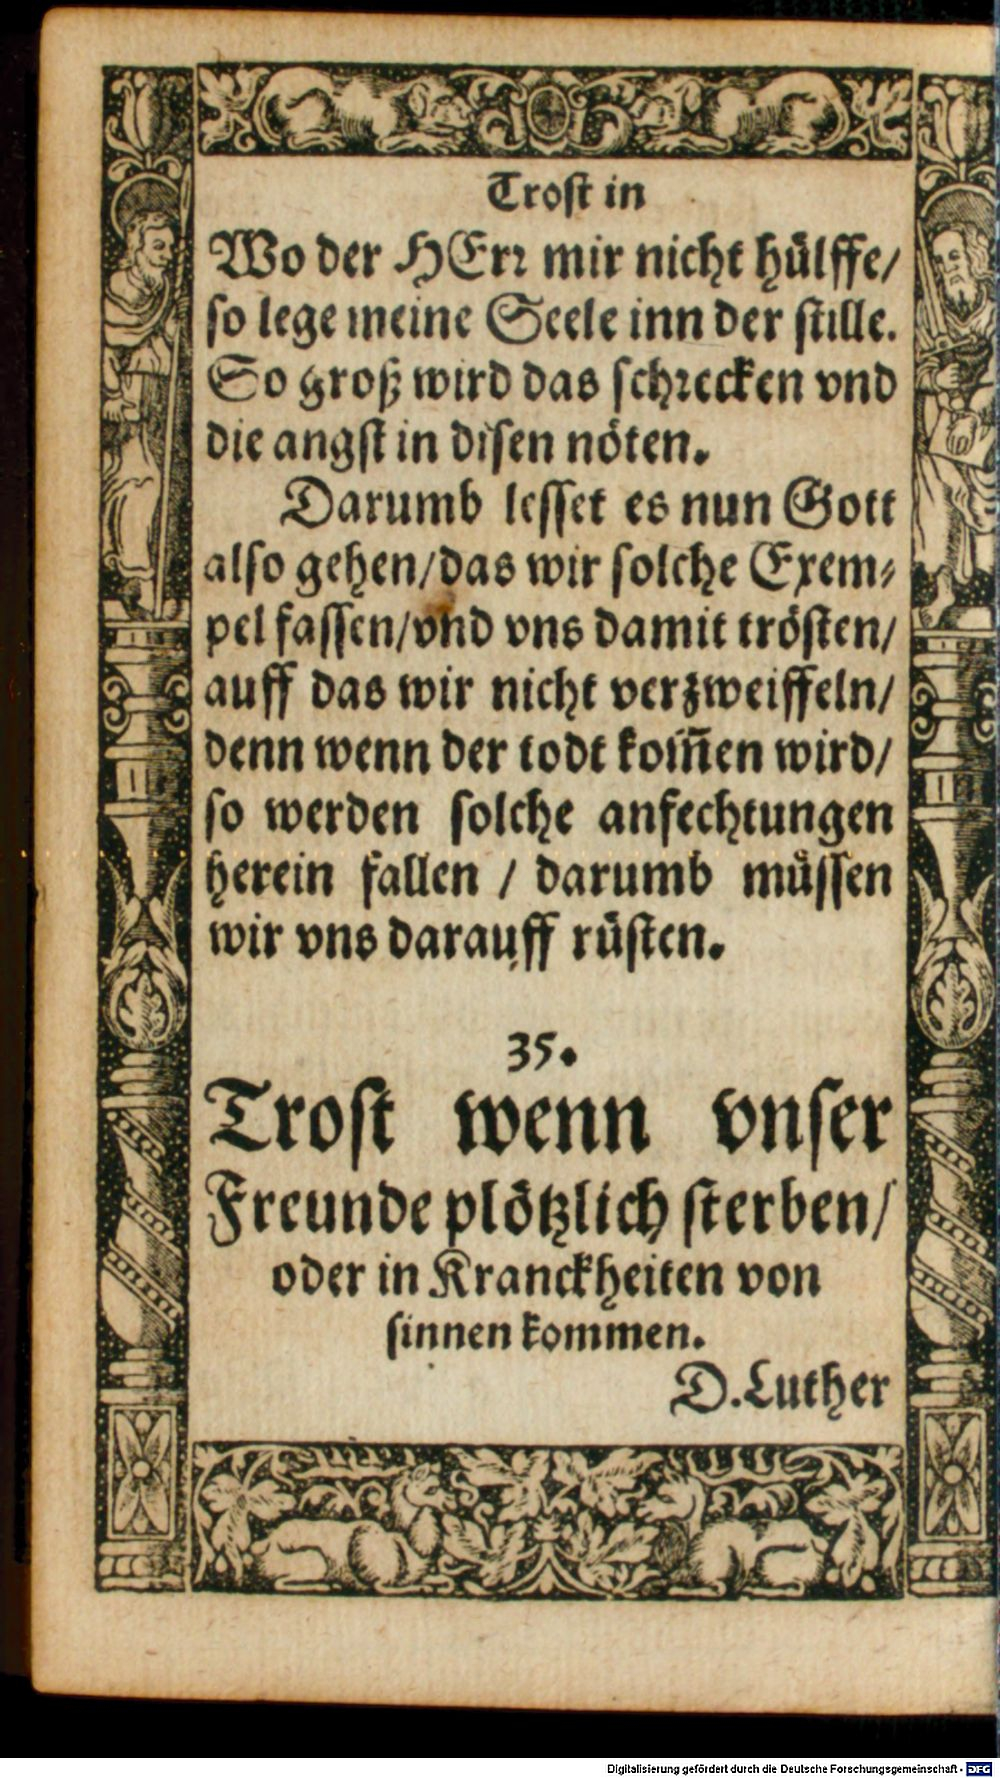 Trost in
Wo der HErr mir nicht hülffe/
so lege meine Seele inn der stille.
So groß wird das schrecken vnd
die angst in disen nöten.
Darumb lesset es nun Gott
also gehen/das wir solche Exem⸗
pel fassen/vnd vns damit trösten/
auff das wir nicht verzweiffeln/
denn wenn der todt kom̃en wird/
so werden solche anfechtungen
herein fallen / darumb müssen
wir vns darauff rüsten.
35.
Trost wenn vnser
Freunde plötzlich sterben/
oder in Kranckheiten von
sinnen kommen.
D.Luther
Digitalisierung gefördert durch die Deutsche Forschungsgemeinschaft - DFG